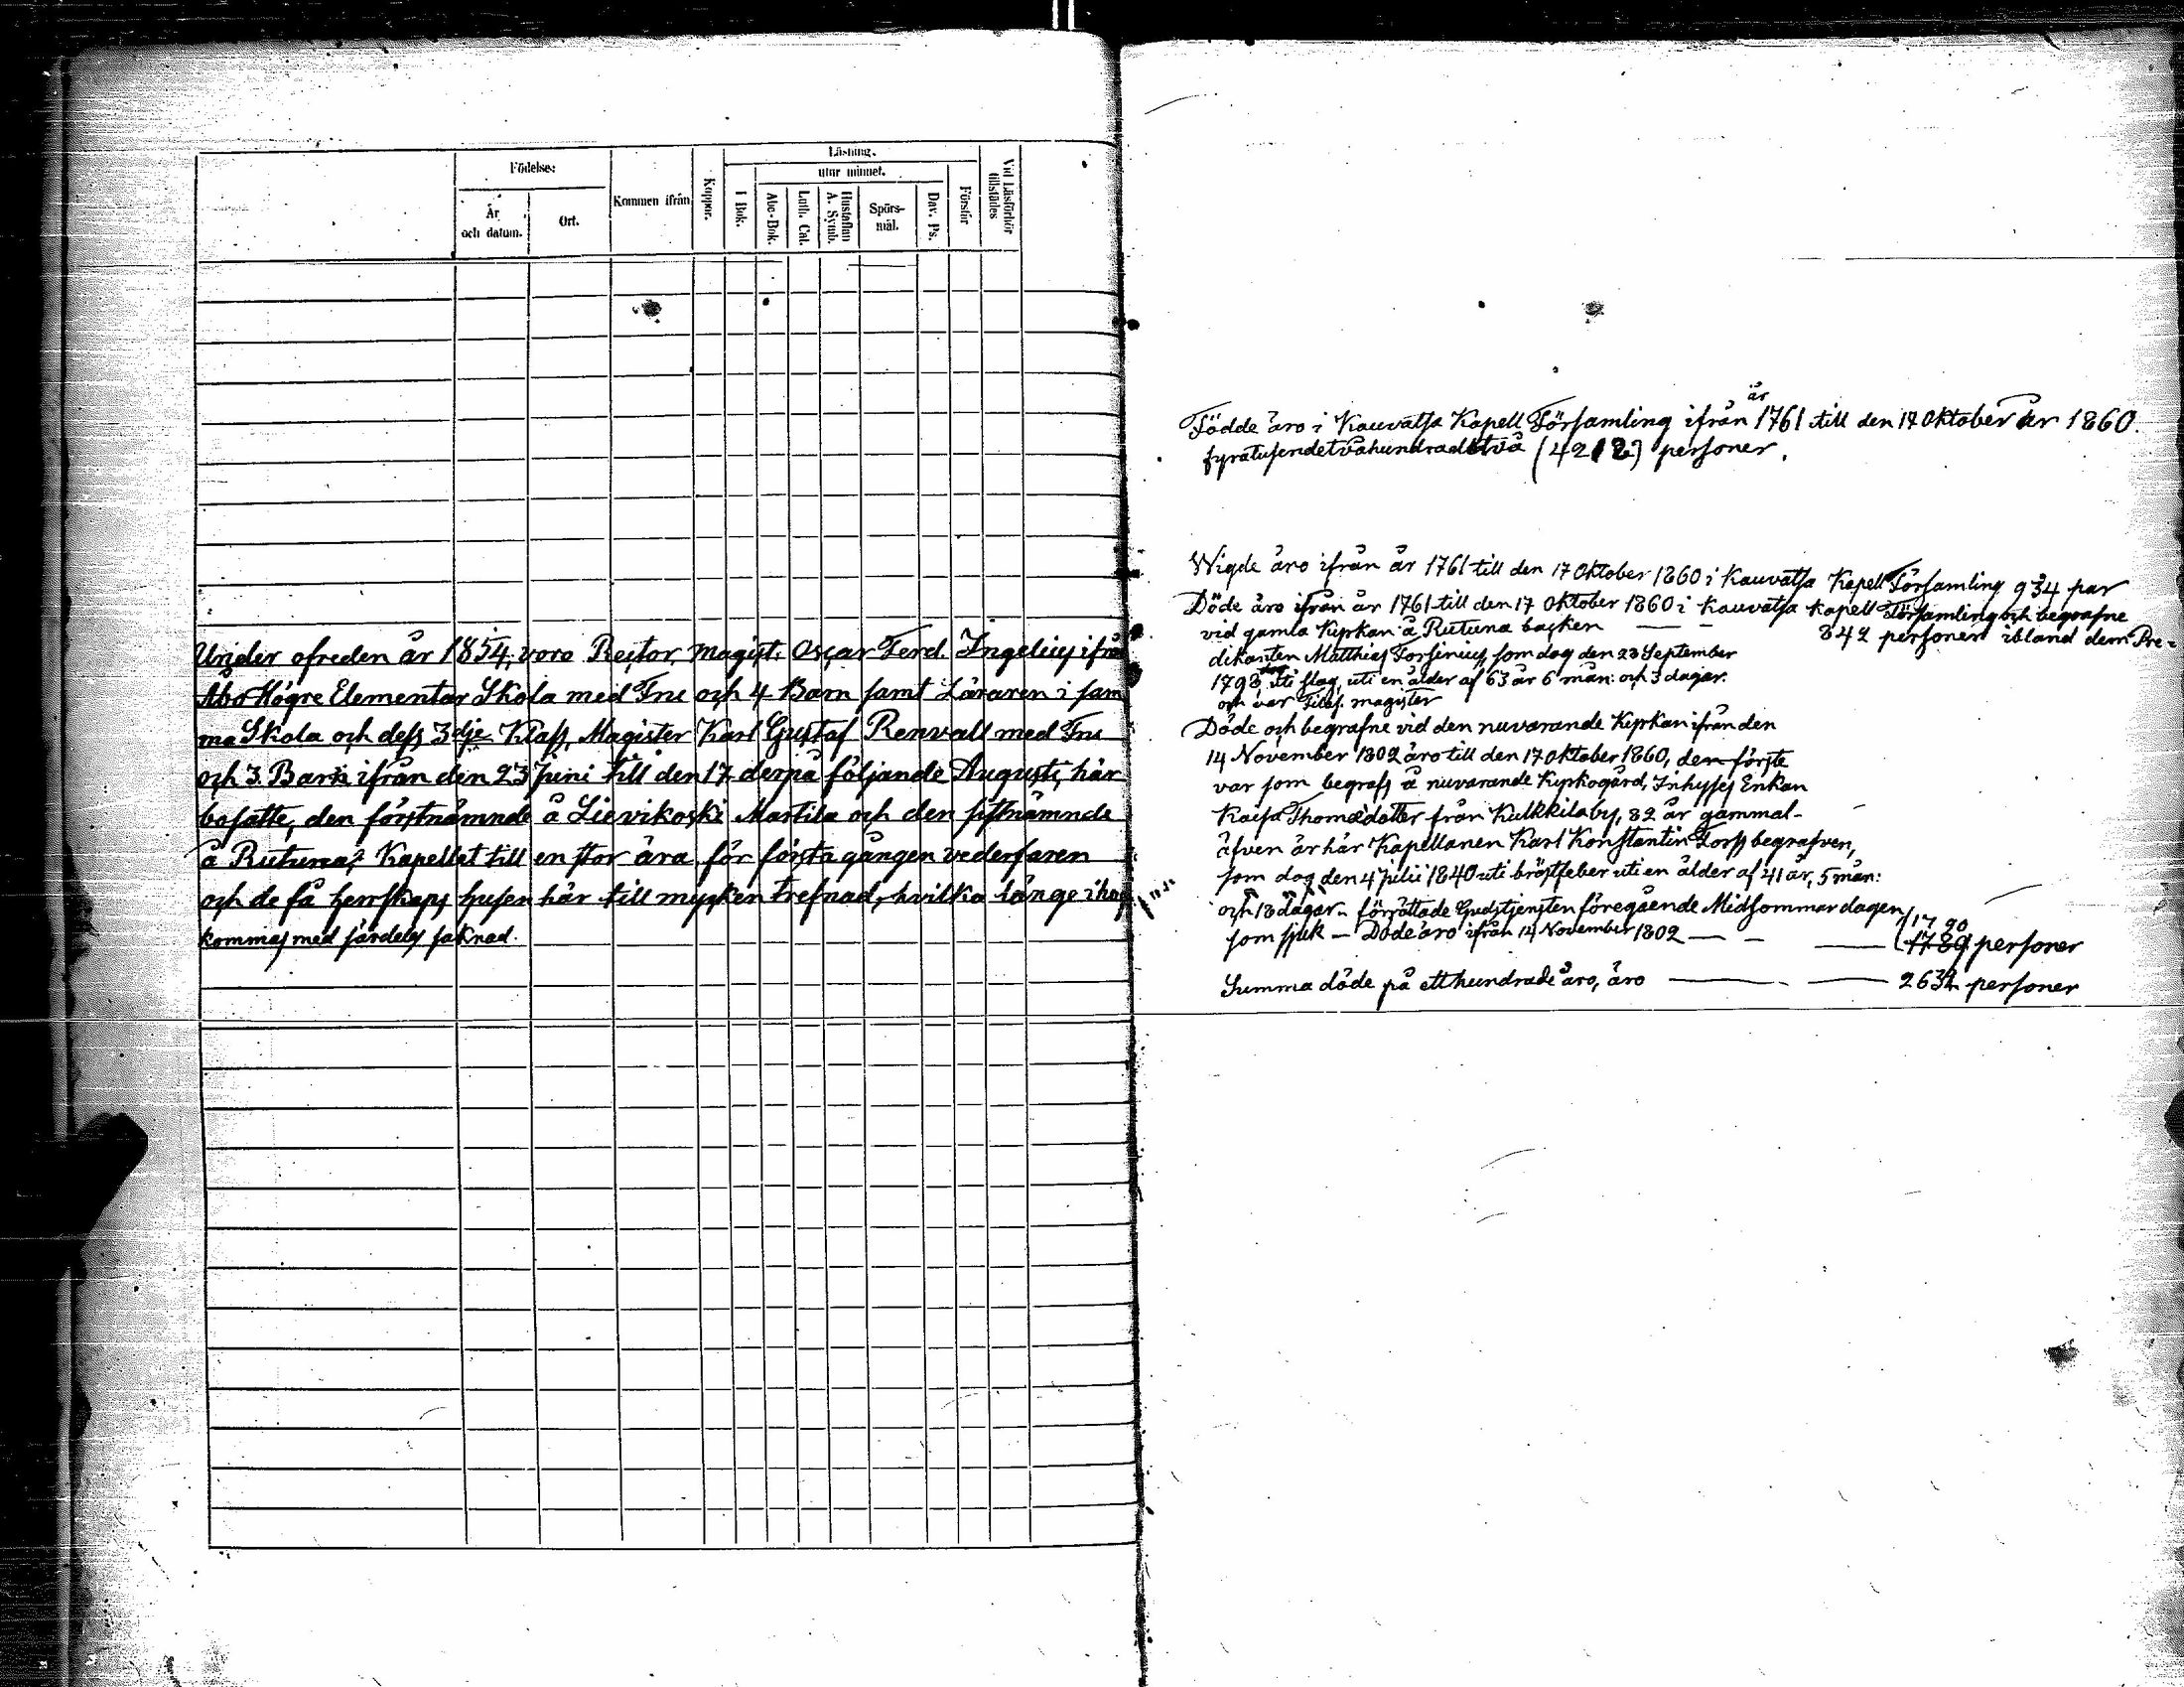 Födelse:
År
och datum.
Ort.
Kommen ifrån
Koppor.
Läsning.
I Bok.
utur minnet.
Abc-Bok.
Luth. Cat.
Hustaflan
A. Symb.
Spörs-
mål.
Dav. Ps.
Förstår
Vid Läsförhör
tillstädes
Under ofreden år 1854, voro Rector, Magist. Oscar Ferd. Ingelius ifrån
Åbo Högre Elementar Skola med Fru och 4 Barn samt Läraren i sam
ma Skola och dess 3dje Klass, Magister Karl Gustaf Renvall med Fru
och 3. Barn ifrån den 23 Juni till den 17 derpå följande Augusti, här
bosatte, den förstnämnde å Lievikoski Martila och den sistnämnde
å Rutuna, Kapellet till en stor ära för första gången vederfaren
och de få herrskaps husen här till mycken trefnad, hvilka länge ihog
kommas med särdeles saknad.
år
Födde äro i Kauvatsa Kapell Församling ifrån 1761 till den 17 Oktober år 1860.
fyratusendetvåhundradetvå (4212) personer.
Wigde äro ifrån år 1761 till den 17 Oktober 1860 i Kauvatsa Kapell Församling 934 par
Döde äro ifrån år 1761 till den 17 Oktober 1860 i Kauvatsa Kapell Församling och begrafne
vid gamla Kyrkan å Rutuna backen — — 842 personer ibland dem Pre-
dikanten Matthias Forsinius, som dog den 23 September
1793, uti slag, uti en ålder af 63 år 6 mån: och 3 dagar.
och var Filos. magister
Döde och begrafne vid den nuvarande Kyrkan ifrån den
14 November 1802 äro till den 17 Oktober 1860, den förste
var som begrafs å nuvarande Kyrkogård, Inhyses Enkan
Kaisa Thomædotter från Kulkkila by, 82 år gammal -
äfven är här Kapellanen Karl Konstantin Forss begrafven,
som dog den 4 Julii 1840 uti bröstfeber uti en ålder af 41 år, 5 mån:
och 18 dagar - förrättade Gudstjensten föregående Midsommar dagen
som sjuk — Döde äro ifrån 14 November 1802 — — — 1790
1789 personer
Summa döde på ett hundrade åro, äro — — 2632 personer